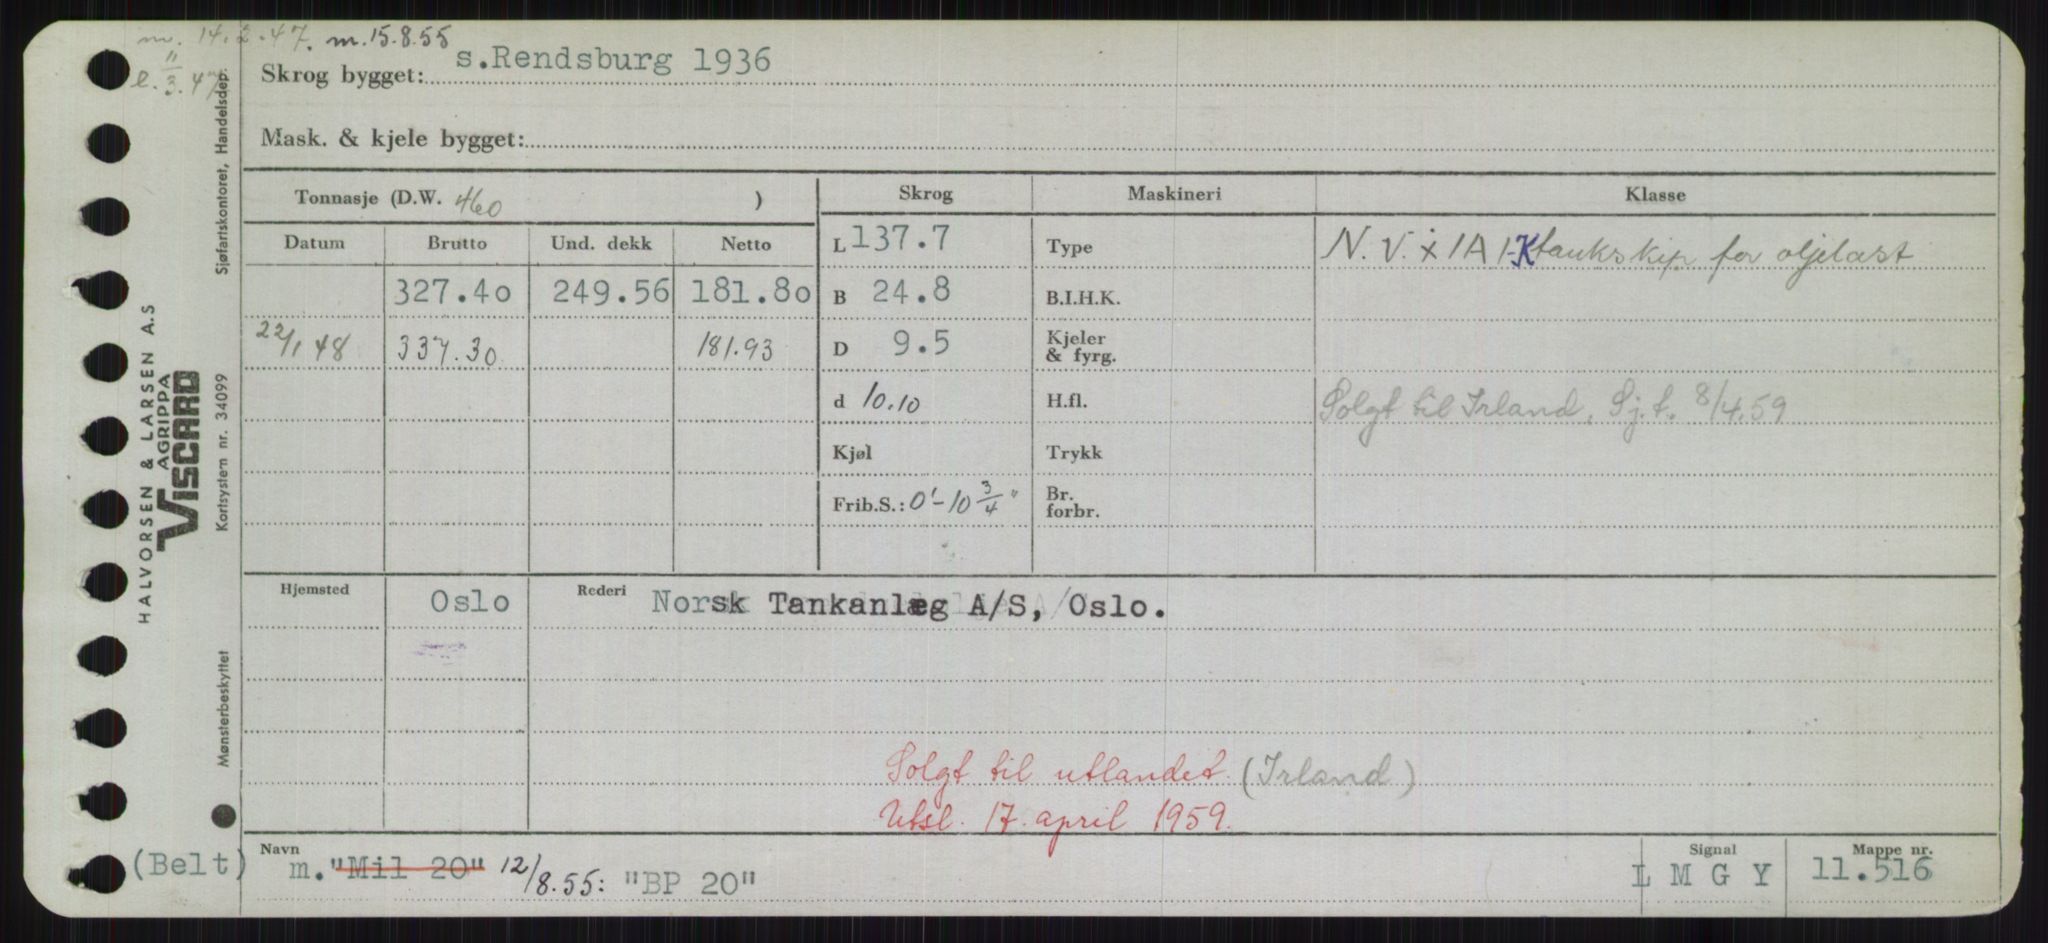 m. 14.2.47. m.15.8.55
e. 11/3.47
Skrog bygget: s.Rendsburg 1936
Mask. & kjele bygget:
Tonnasje (D.W. 460 )
Skrog
Maskineri
Klasse
Datum Brutto Und. dekk Netto
L 137.7
Type
N.V. ẋ 1A1-K tankskip for oljelast
327.40 249.56 181.80
B 24.8
B.I.H.K.
22/1 48 337.30 181.93
D 9.5
Kjeler
& fyrg.
d 10.10
H.fl.
Solgt til Irland. Sj.t. 8/4.59
Kjøl
Trykk
Frib.S.: 0'-10 3/4"
Br.
forbr.
Hjemsted Oslo
Rederi Norsk Tankanlæg A/S, Oslo.
Solgt til utlandet (Irland)
Utsl. 17. april 1959.
(Belt)
Navn m. "Mil 20" 12/8.55: "BP 20"
Signal L M G Y
Mappe nr. 11.516
HALVORSEN & LARSEN A.S
AGRIPPA
VISCARD
Sjøfartskontoret, Handelsdep.
Kortsystem nr. 34099
Mønsterbeskyttet